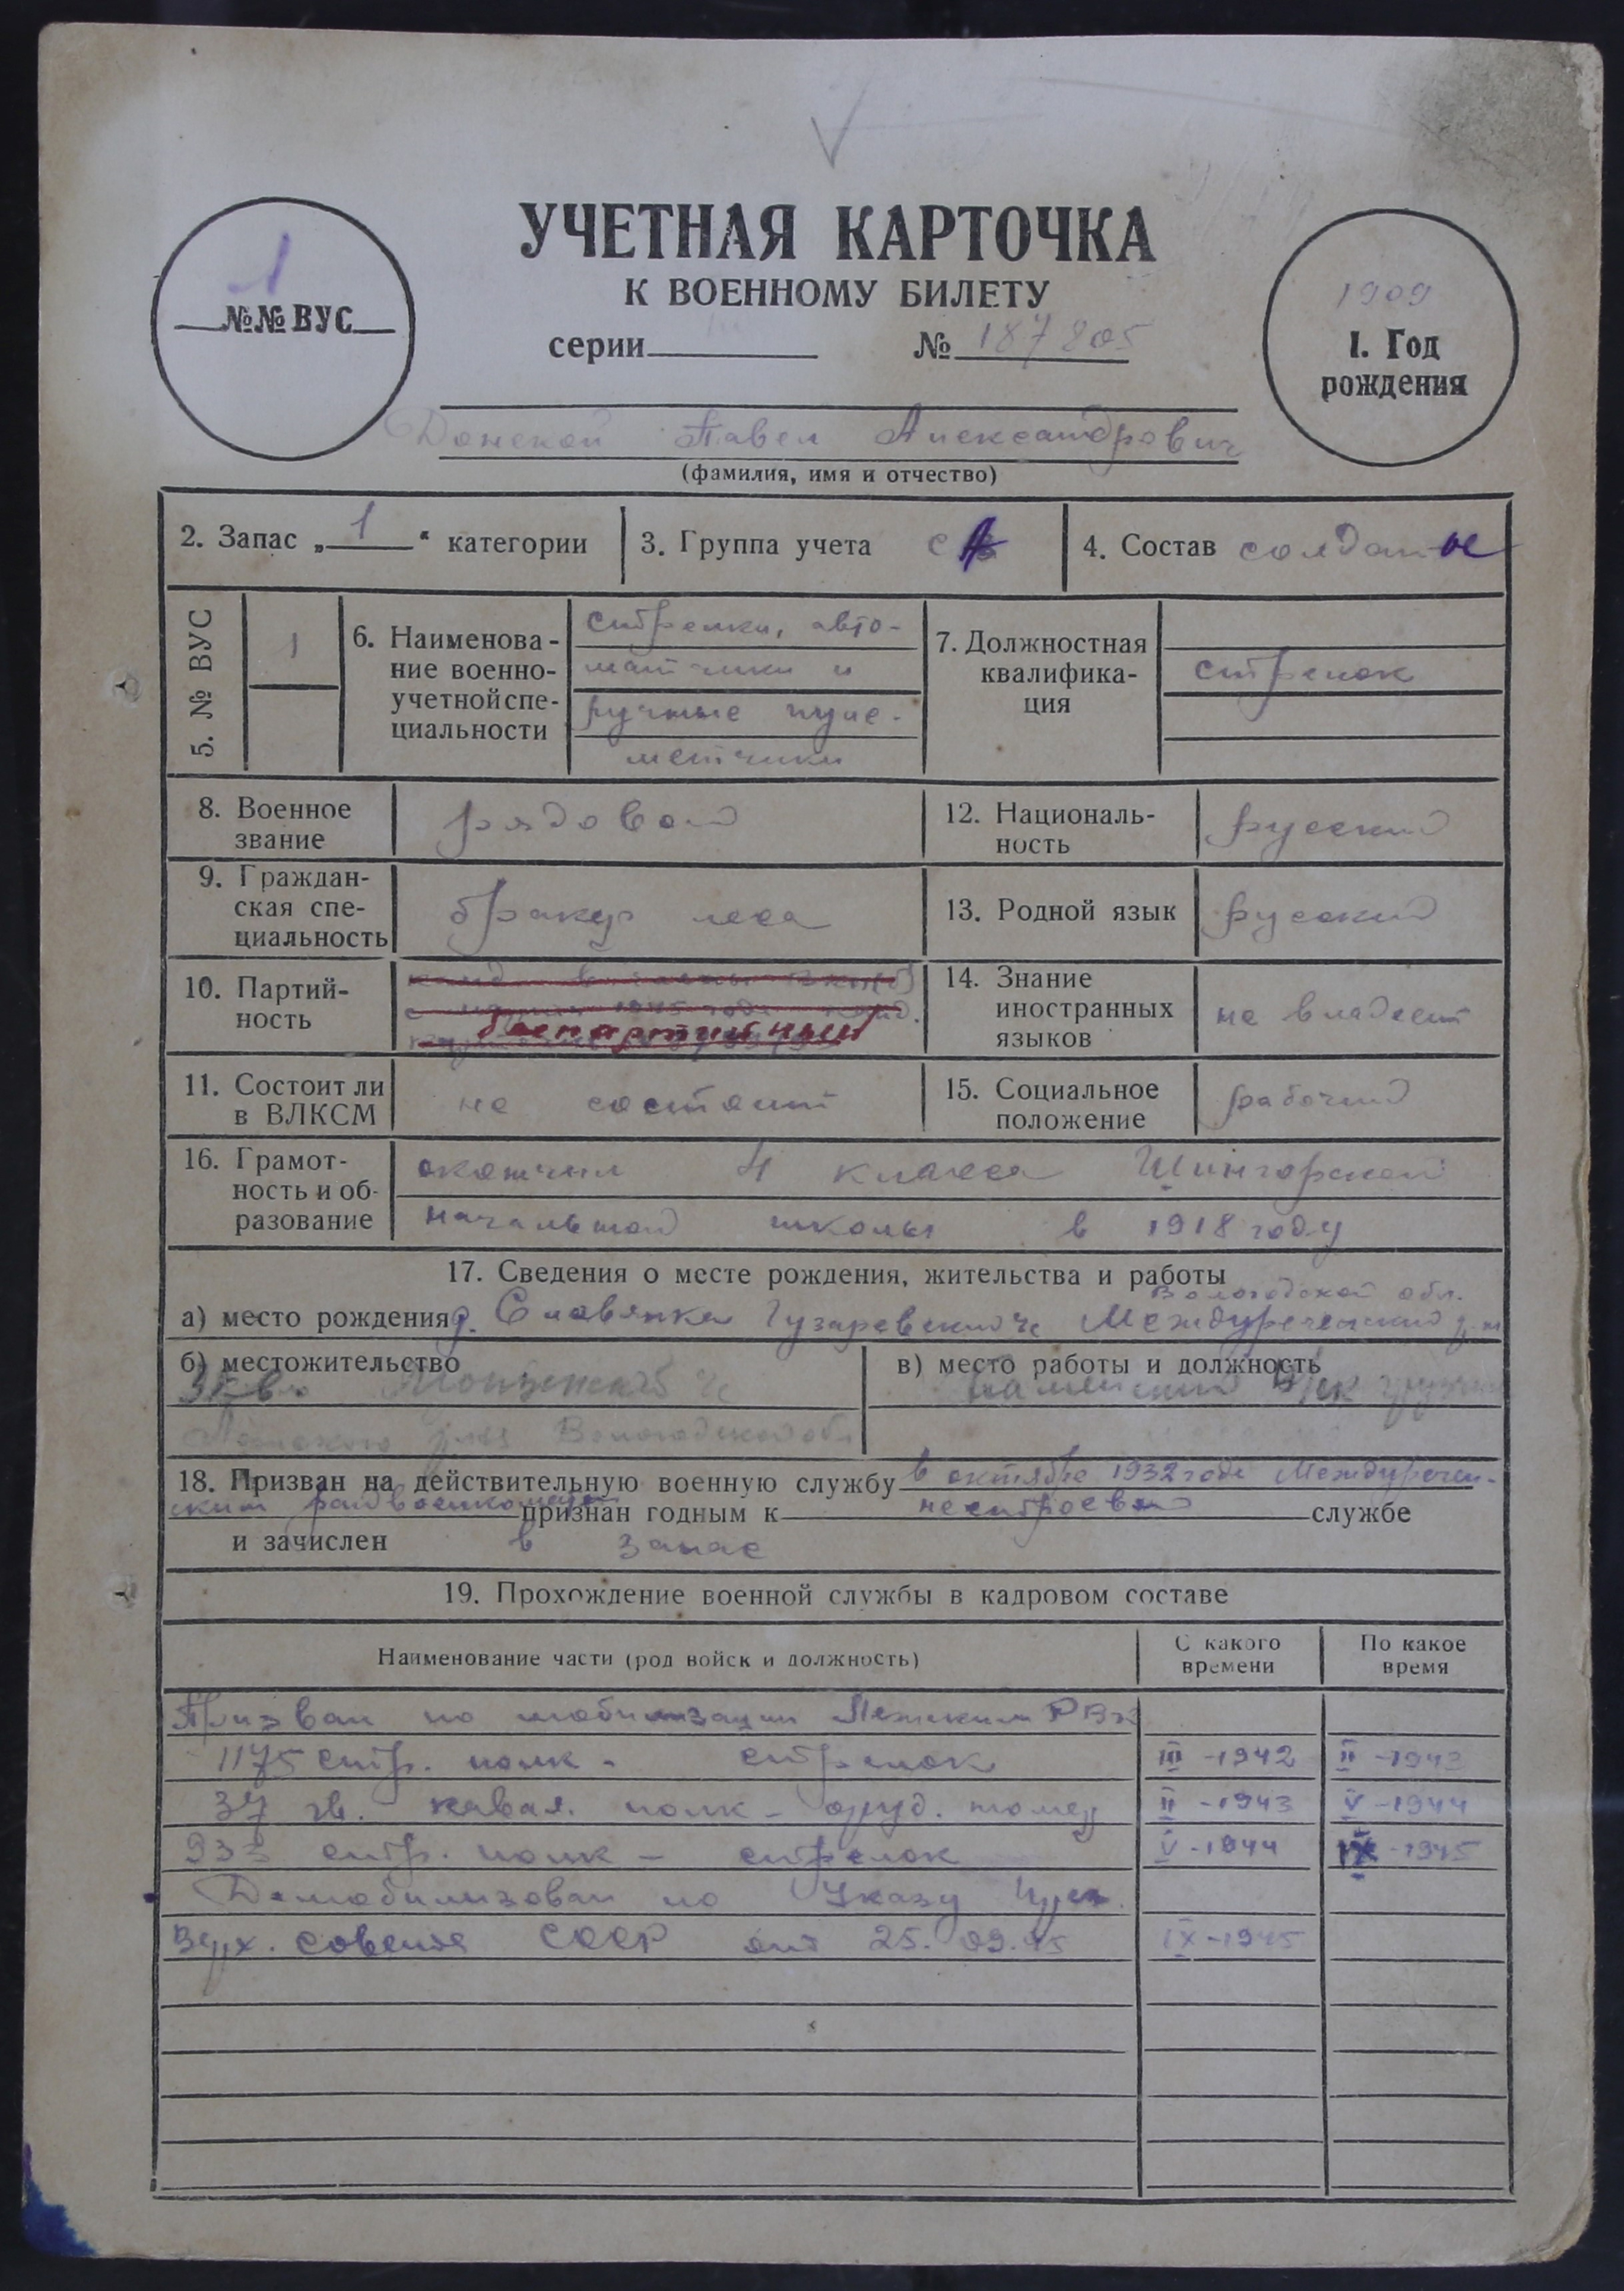 УЧЕТНАЯ КАРТОЧКА
К ВОЕННОМУ БИЛЕТУ
1
№№ ВУС
серии № 187805
1909
1. Год
рождения
Донской Павел Александрович
(фамилия, имя и отчество)
2. Запас „1“ категории
3. Группа учета СА
4. Состав солдаты
5. № ВУС
1
6. Наименова-
ние военно-
учетной спе-
циальности
стрелки, авто-
матчики и
ручные пуле-
метчики
7. Должностная
квалифика-
ция
стрелок
8. Военное
звание
рядовой
12. Националь-
ность
русский
9. Граждан-
ская спе-
циальность
бракер леса
13. Родной язык
русский
10. Партий-
ность
беспартийный
14. Знание
иностранных
языков
не владеет
11. Состоит ли
в ВЛКСМ
не состоит
15. Социальное
положение
рабочий
16. Грамот-
ность и об-
разование
окончил 4 класса Шингорской
начальной школы в 1918 году
17. Сведения о месте рождения, жительства и работы
Вологодской обл.
а) место рождения д. Славянка Гузаревский с/с Междуреченский р-н
б) местожительство
Вологодской обл
в) место работы и должность
18. Призван на действительную военную службу в октябре 1932 года Междуречен-
ским райвоенкоматом признан годным к нестроевой службе
и зачислен в запас
19. Прохождение военной службы в кадровом составе
Наименование части (род войск и должность)
С какого
времени
По какое
время
Призван по мобилизации Лежским РВК
1175 стр. полк - стрелок III-1942 II-1943
37 гв. кавал. полк - оруд. номер II-1943 V-1944
933 стр. полк - стрелок V-1944 IX-1945
Демобилизован по Указу През.
Верх. Совета СССР от 25.09.45 IX-1945